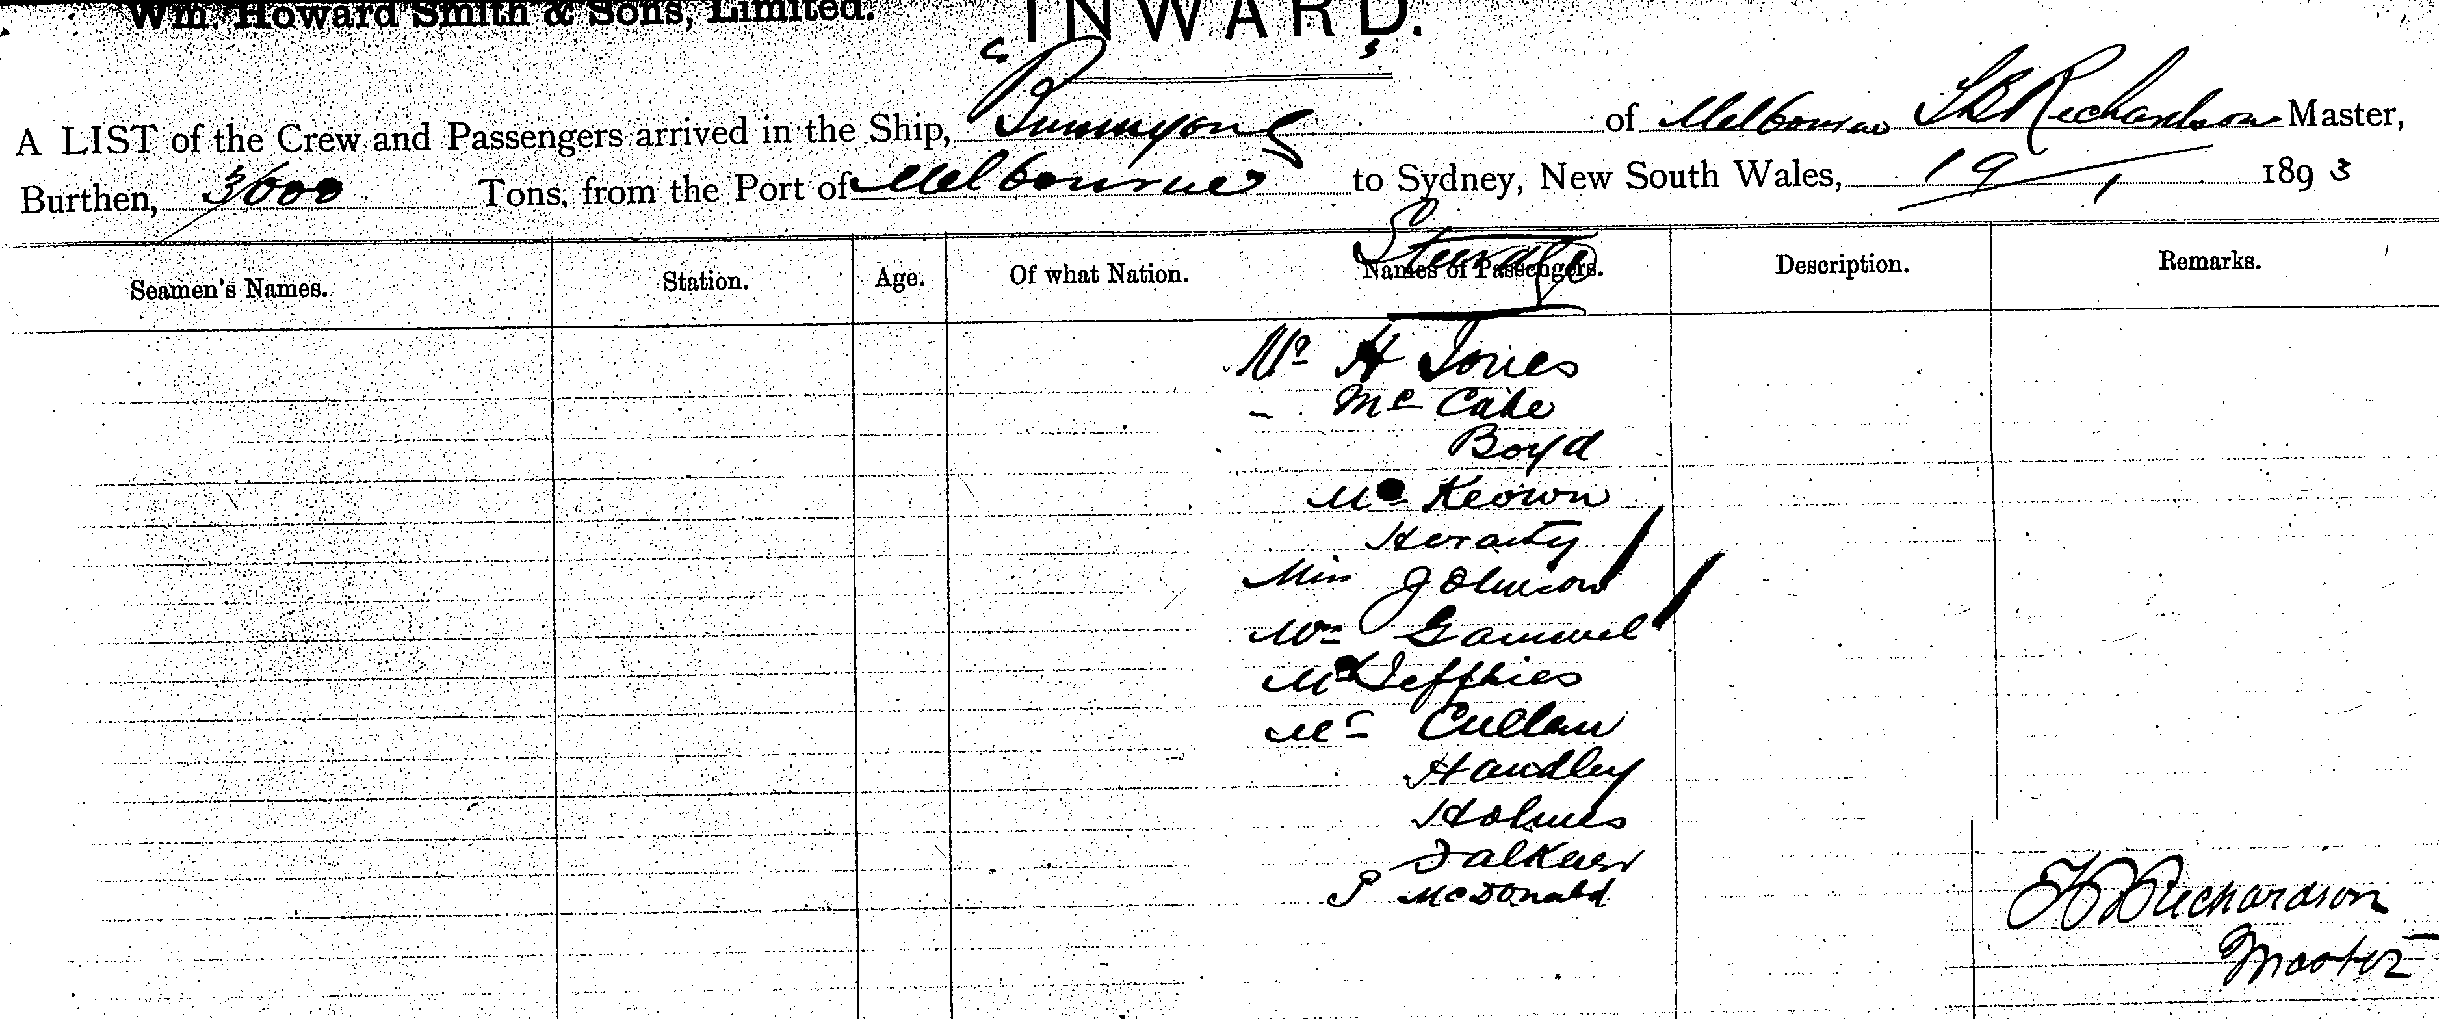 Wm. Howard Smith & Sons, Limited.
INWARD.
A LIST of the Crew and Passengers arrived in the Ship, "Buninyong" of Melbourne Richardson Master,
Burthen, 3/000 Tons, from the Port of Melbourne to Sydney, New South Wales, 19/1 1893
Steerage
Seamen's Names. Station. Age. Of what Nation. Names of Passengers. Description. Remarks.
Mr H Jones
- McCabe
Boyd
McKeown
Heraty
Miss Johnson
Mrs Gamwel
Mr Jeffries
Mr Cullen
Handley
Holmes
Falkner
P McDonald
Richardson
Master